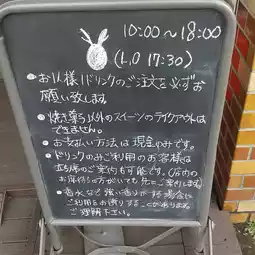 10:00〜18:00
(L.O 17:30)
●お1人様1ドリンクのご注文を必ずお
願い致します。
●焼き菓子以外のスイーツのテイクアウトは
できません。
●お支払い方法は現金のみです。
●ドリンクのみご利用のお客様は
立ち席のご案内も可能です。(店内の
お席待ちの方がいても先にご案内します)
●香水など強い香りが
ご利用をお断りすることがあります。
ご理解下さい。